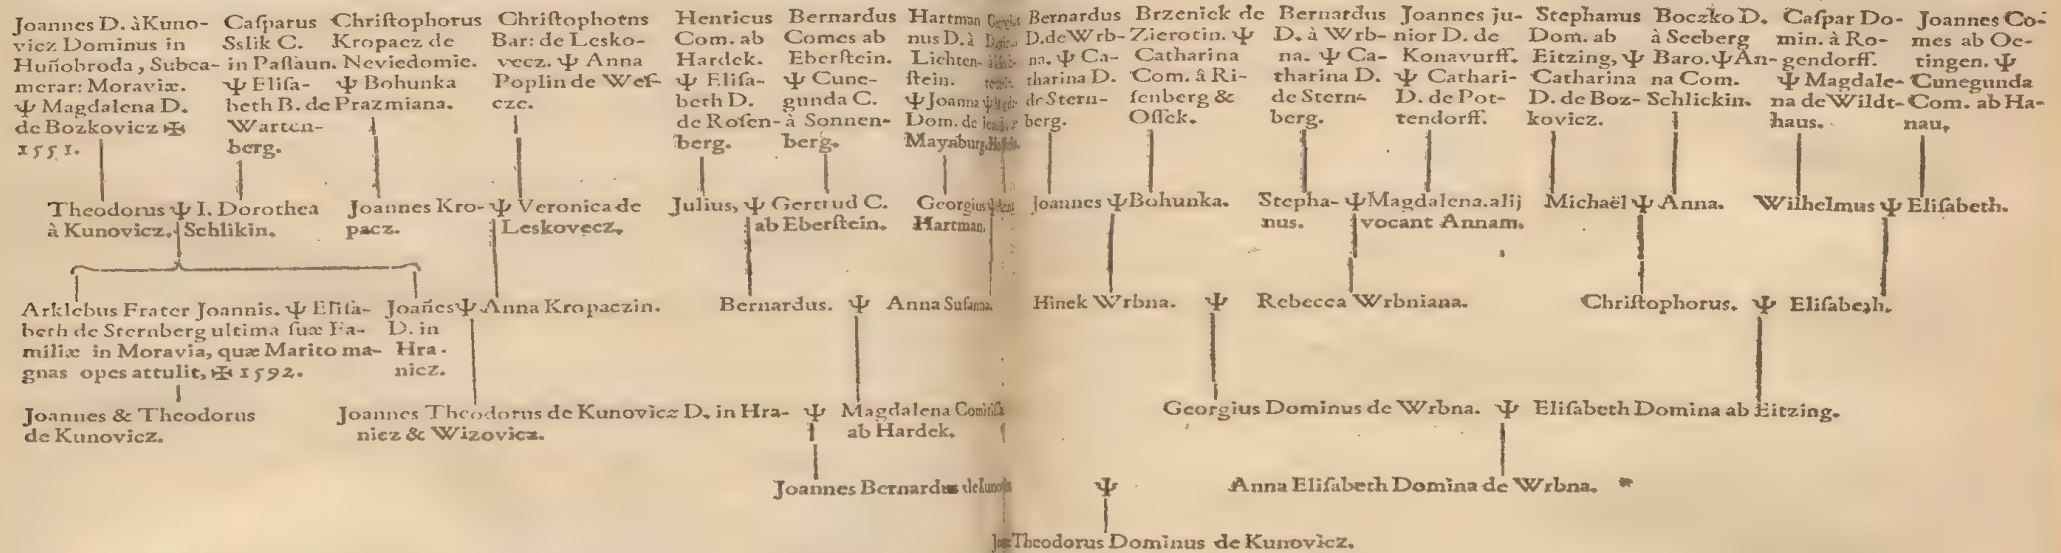 Joannes D. àKuno-
vicz Dominus in
Huñobroda, Subca-
merar: Moraviæ.
Ψ Magdalena D.
de Bozkovicz ✠
1551.
Caſparus
Sslik C.
in Paſlaun.
Ψ Eliſa-
beth B. de
Warten-
berg.
Chriſtophorus
Kropacz de
Neviedomie.
Ψ Bohunka
Prazmiana.
Chriſtophotns
Bar: de Lesko-
vecz. Ψ Anna
Poplin de Weſ-
cze.
Henricus
Com. ab
Hardek.
Ψ Eliſa-
beth D.
de Roſen-
berg.
Bernardus
Comes ab
Eberſtein.
Ψ Cune-
gunda C.
à Sonnen-
berg.
Hartman
nus D. à
Lichten-
ſtein.
Ψ Joanna
Dom. de
Maynburg.
Bernardus
D. de Wrb-
na. Ψ Ca-
tharina D.
de Stern-
berg.
Brzenick de
Zierotin. Ψ
Catharina
Com. â Ri-
ſenberg &
Oſſek.
Bernardus
D. à Wrb-
na. Ψ Ca-
tharina D.
de Stern-
berg.
Joannes ju-
nior D. de
Konavurff.
Ψ Cathari-
D. de Pot-
tendorff.
Stephanus
Dom. ab
Eitzing, Ψ
Catharina
D. de Boz-
kovicz.
Boczko D.
à Seeberg
Baro. Ψ An-
na Com.
Schlickin.
Caſpar Do-
min. à Ro-
gendorff.
Ψ Magdale-
na de Wildt-
haus.
Joannes Co-
mes ab Oe-
tingen. Ψ
Cunegunda
Com. ab Ha-
nau.
Theodorus Ψ I. Dorothea
à Kunovicz. Schlikin.
Joannes Kro- Ψ Veronica de
pacz. Leskovecz.
Julius, Ψ Gertrud C.
ab Eberſtein.
Georgius Ψ
Hartman.
Joannes Ψ Bohunka.
Stepha- Ψ Magdalena. alij
nus. vocant Annam.
Michaël Ψ Anna.
Wilhelmus Ψ Eliſabeth.
Arklebus Frater Joannis. Ψ Eliſa-
beth de Sternberg ultima ſuæ Fa-
miliæ in Moravia, quæ Marito ma-
gnas opes attulit, ✠ 1592.
Joañes Ψ Anna Kropaczin.
D. in
Hra-
nicz.
Bernardus. Ψ Anna Suſanna.
Hinek Wrbna. Ψ Rebecca Wrbniana.
Chriſtophorus. Ψ Eliſabeah.
Joannes & Theodorus
de Kunovicz.
Joannes Theodorus de Kunovicz D. in Hra- Ψ Magdalena Comitiſſa
nicz & Wizovicz. ab Hardek.
Georgius Dominus de Wrbna. Ψ Eliſabeth Domina ab Eitzing.
Joannes Bernardus de Kunovicz Ψ Anna Eliſabeth Domina de Wrbna.
Theodorus Dominus de Kunovicz.